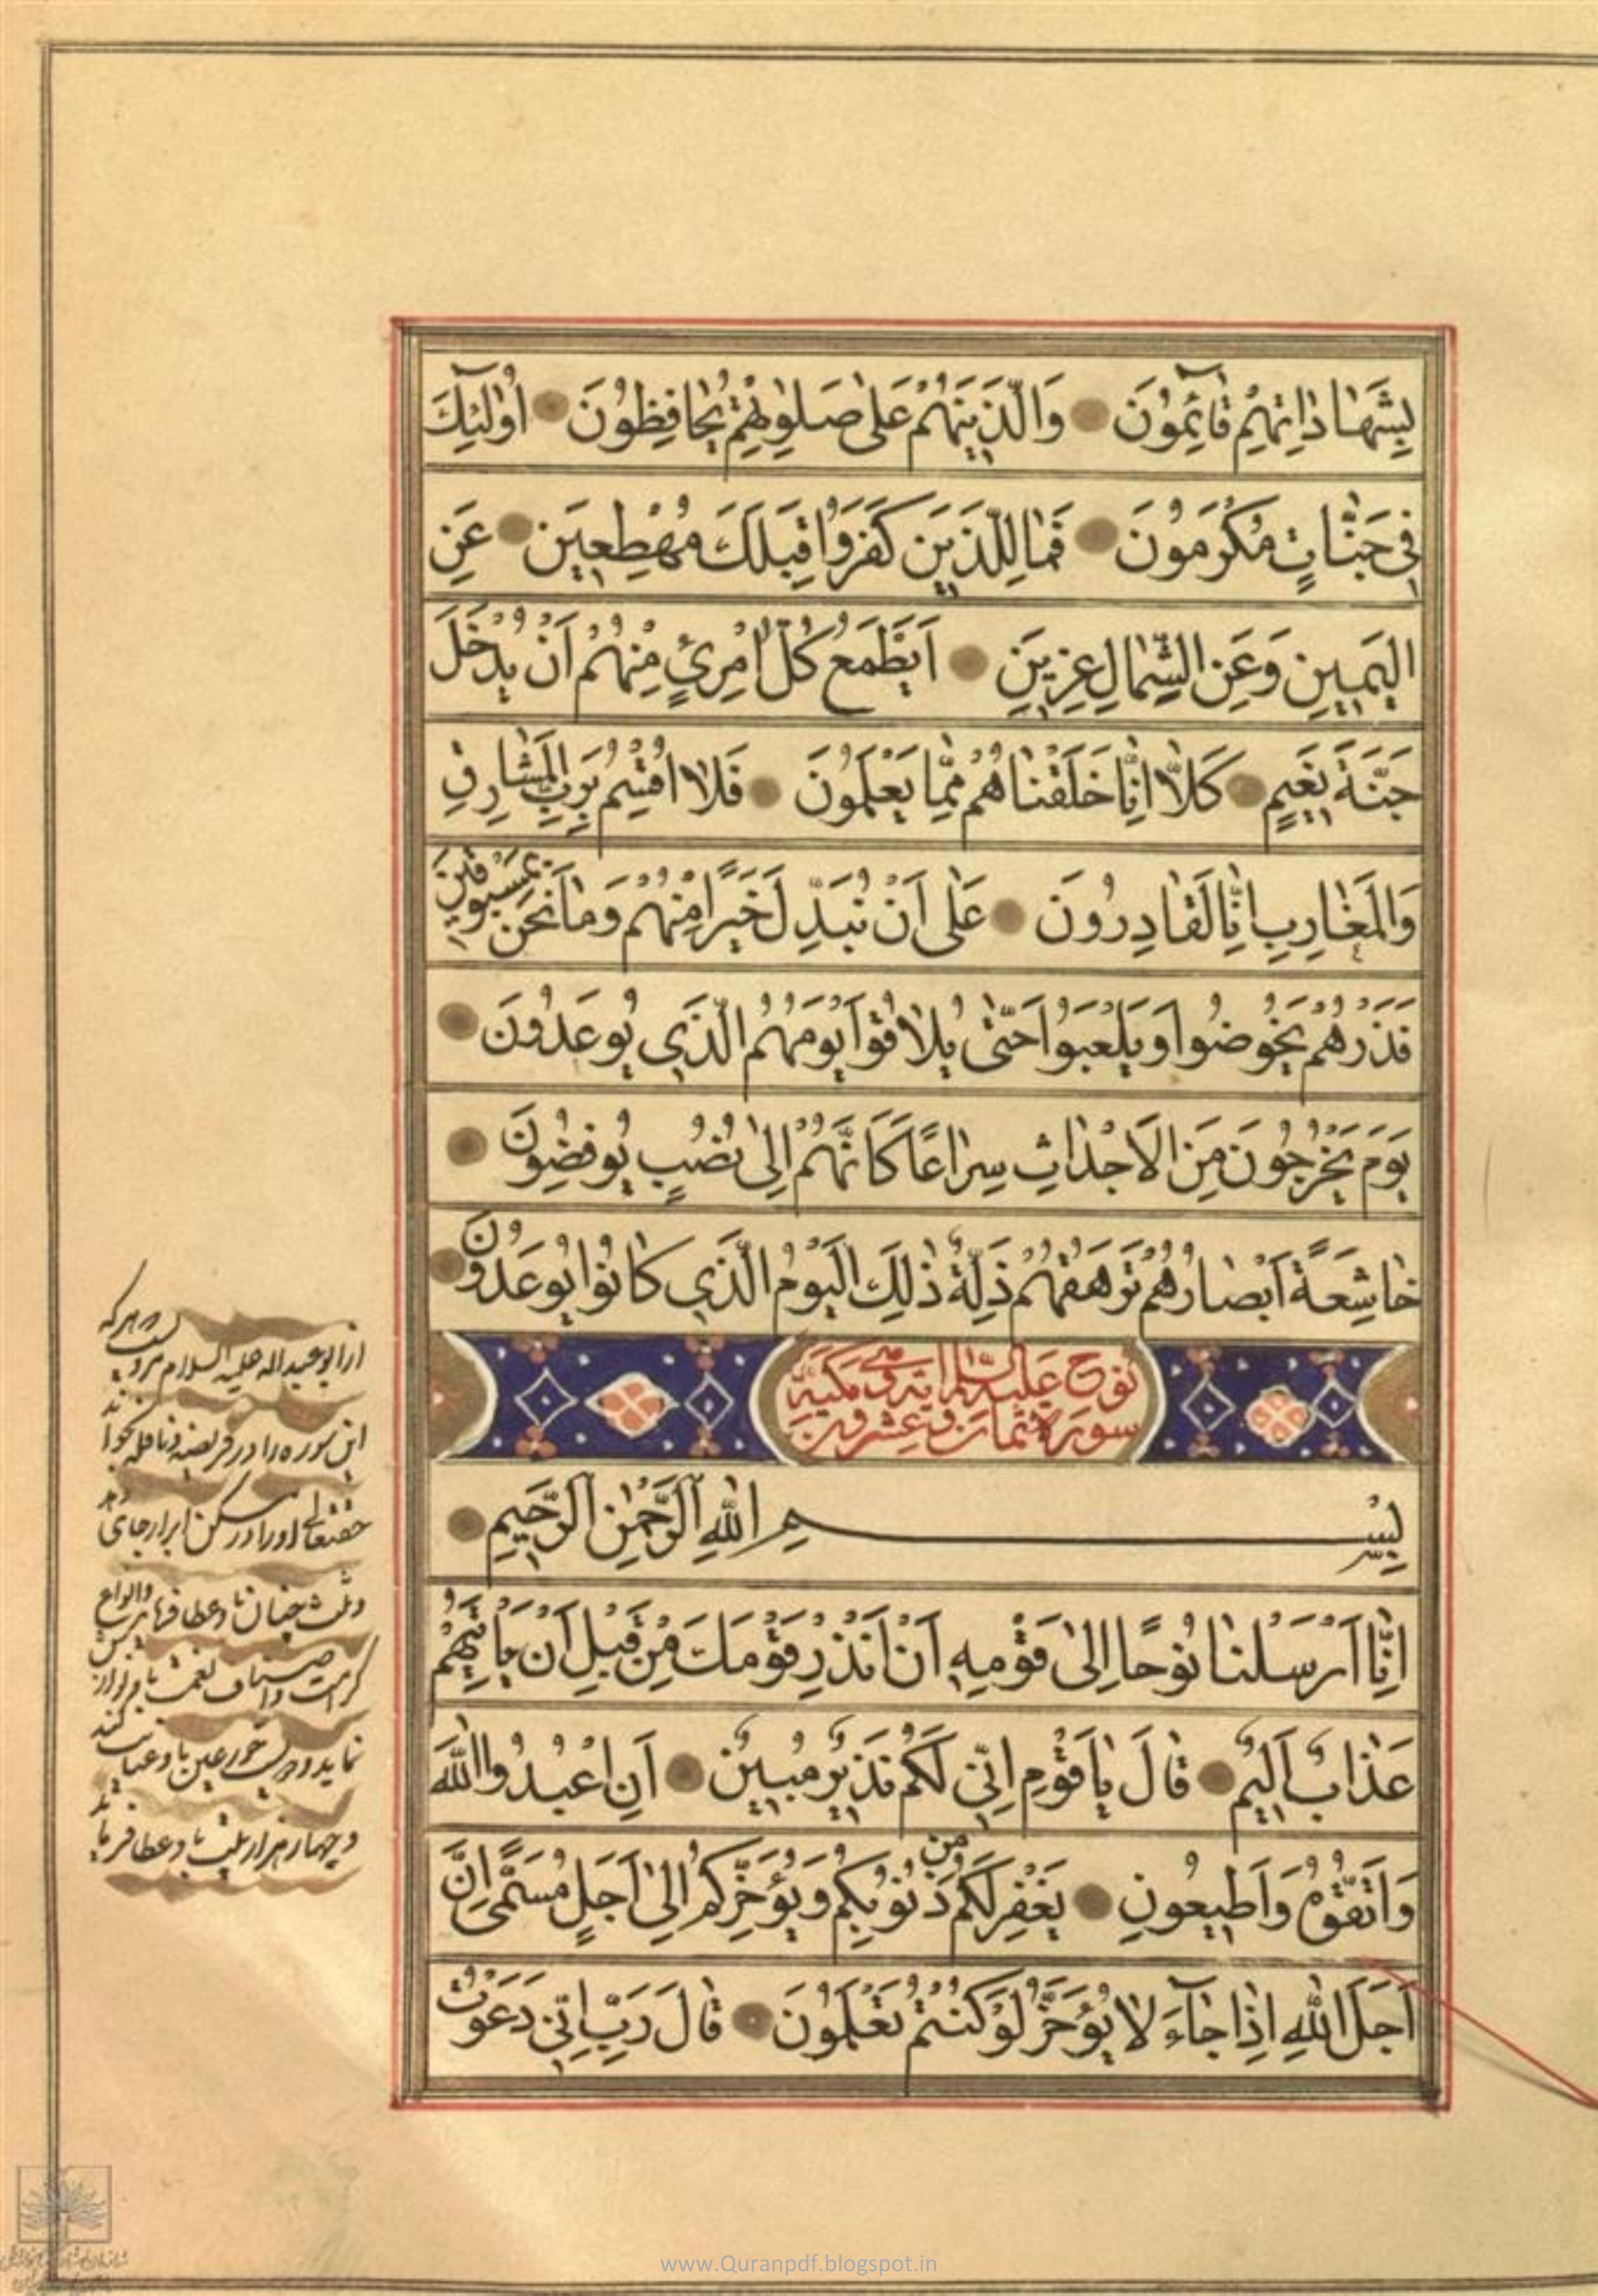 بِشَهَادَاتِهِمْ قَائِمُونَ وَالَّذِينَهُمْ عَلَى صَلَوٰتِهِمْ يُحَافِظُونَ اُولٰئِكَ
فِي جَنَّاتٍ مُكْرَمُونَ فَمَالِ الَّذِينَ كَفَرُوا قِبَلَكَ مُهْطِعِينَ عَنِ
الْيَمِينِ وَعَنِ الشِّمَالِ عِزِينَ اَيَطْمَعُ كُلُّ امْرِئٍ مِنْهُمْ اَنْ يُدْخَلَ
جَنَّةَ نَعِيمٍ كَلَّا اِنَّا خَلَقْنَاهُمْ مِمَّا يَعْلَمُونَ فَلَا اُقْسِمُ بِرَبِّ الْمَشَارِقِ
وَالْمَغَارِبِ اِنَّا لَقَادِرُونَ عَلَى اَنْ نُبَدِّلَ خَيْرًا مِنْهُمْ وَمَا نَحْنُ بِمَسْبُوقِينَ
فَذَرْهُمْ يَخُوضُوا وَيَلْعَبُوا حَتَّى يُلَاقُوا يَوْمَهُمُ الَّذِي يُوعَدُونَ
يَوْمَ يَخْرُجُونَ مِنَ الْاَجْدَاثِ سِرَاعًا كَاَنَّهُمْ اِلَى نُصُبٍ يُوفِضُونَ
خَاشِعَةً اَبْصَارُهُمْ تَرْهَقُهُمْ ذِلَّةٌ ذٰلِكَ الْيَوْمُ الَّذِي كَانُوا يُوعَدُونَ
سورة نوح عليه السلام ثمان وعشرون اية وهي مكية
بِسْمِ اللّٰهِ الرَّحْمٰنِ الرَّحِيمِ
اِنَّا اَرْسَلْنَا نُوحًا اِلَى قَوْمِهِ اَنْ اَنْذِرْ قَوْمَكَ مِنْ قَبْلِ اَنْ يَاْتِيَهُمْ
عَذَابٌ اَلِيمٌ قَالَ يَا قَوْمِ اِنِّي لَكُمْ نَذِيرٌ مُبِينٌ اَنِ اعْبُدُوا اللّٰهَ
وَاتَّقُوهُ وَاَطِيعُونِ يَغْفِرْ لَكُمْ مِنْ ذُنُوبِكُمْ وَيُؤَخِّرْكُمْ اِلَى اَجَلٍ مُسَمًّى اِنَّ
اَجَلَ اللّٰهِ اِذَا جَاءَ لَا يُؤَخَّرُ لَوْ كُنْتُمْ تَعْلَمُونَ قَالَ رَبِّ اِنِّي دَعَوْتُ
از ابو عبدالله علیه السلام مرویست هرکه
این سوره را در فریضه و نافله بخواند
حقتعالی او را در مسکن ابرار جای دهد
و چهار هزار ثیب باو عطا فرماید
www.Quranpdf.blogspot.in